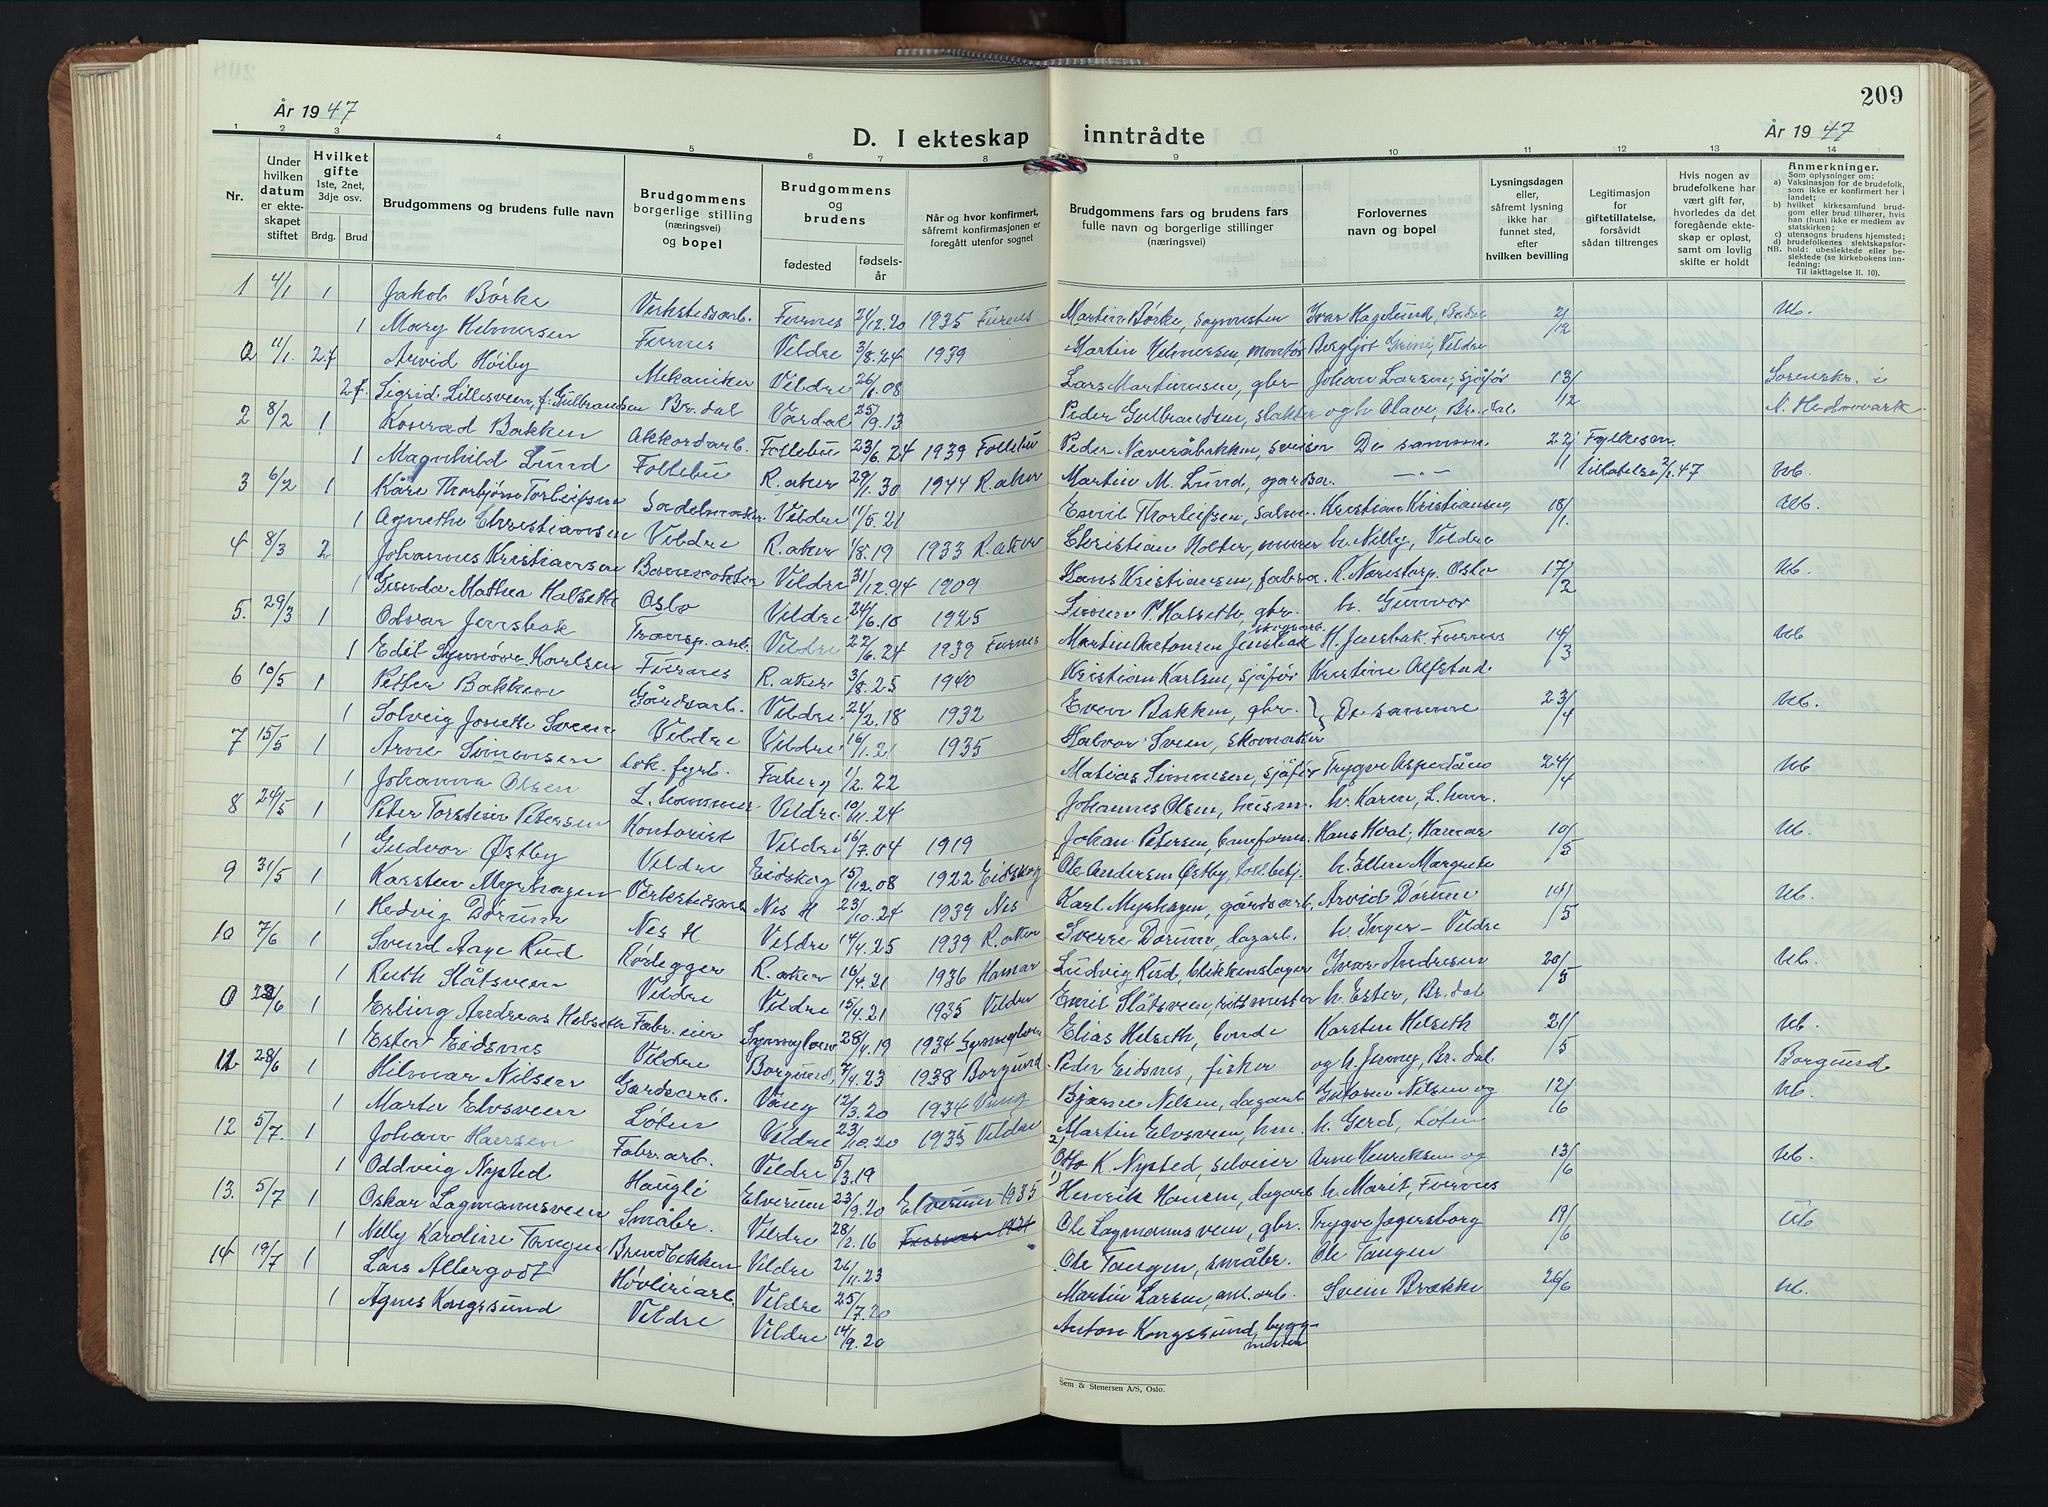 209
År 1947
År 1947
D. I ekteskap inntrådte
1 2 3 4 5 6 7 8 9 10 11 12 13 14
Nr.
Under hvilken datum er ekteskapet stiftet
Hvilket gifte 1ste, 2net, 3dje osv.
Brdg. Brud
Brudgommens og brudens fulle navn
Brudgommens borgerlige stilling (næringsvei) og bopel
Brudgommens og brudens
fødested
fødselsår
Når og hvor konfirmert, såfremt konfirmasjonen er foregått utenfor sognet
Brudgommens fars og brudens fars fulle navn og borgerlige stillinger (næringsvei)
Forlovernes navn og bopel
Lysningsdagen eller, såfremt lysning ikke har funnet sted, efter hvilken bevilling
Legitimasjon for giftetillatelse, forsåvidt sådan tiltrenges
Hvis nogen av brudefolkene har vært gift før, hvorledes da det foregående ekteskap er opløst, samt om lovlig skifte er holdt
Anmerkninger.
Som oplysninger om:
a) Vaksinasjon for de brudefolk, som ikke er konfirmert her i landet;
b) hvilket kirkesamfund brudgom eller brud tilhører, hvis han (hun) ikke er medlem av statskirken;
c) utensogns brudens hjemsted;
d) brudefolkenes slektskapsforhold: ubeslektede eller beslektede (se kirkebokens innledning:
NB.
Til iakttagelse II. 10).
1 4/1 1 Jakob Børke Verkstedsarb. Furnes 24/12.20 1935 Furnes Martin Børke, sagmester Ivar Hagelund, 21/12 Ub.
1 Mary Helmersen Furnes Vildre 3/8.24 1939 Martin Helmersen, montør Bergljot Grini, Vildre
0 11/1 2.f Arvid Høiby Mekaniker Vildre 26/6.08 Lars Martinsen, gbr. Johan Larsen, sjåfør 13/12 Sorenskr. i
2.f. Sigrid Lillesveen, f. Gulbrandsen Br.dal Vardal 25/9.13 Peder Gulbrandsen, slakter og h. Olave, Br.dal N. Hedmark
2 8/2 1 Konrad Bakken Akkordarb. Follebu 23/6.24 1939 Follebu Peder Næveråbakken, sveiser De samme 22/1 Fylkesm.
1 Magnhild Lund Follebu R.aker 29/1.30 1944 R.aker Martin M. Lund, gardbr. -"- Tillatelse 2/1.47 Ub.
3 6/2 1 Kåre Thorbjørn Torleifsen Sadelmaker Vildre 11/5.21 Emil Thorleifsen, salm. Kristian Kristiansen, 18/1. Ub.
1 Agnethe Christiansen Vildre R.aker 1/8.19 1933 R.aker Christian Holter, murer h. Nelly, Vildre
4 8/3 2 Johannes Kristiansen Vildre 31/12.94 1909 Hans Kristiansen, R. Nærstorp. Oslo 17/2 Ub.
1 Gunda Mathea Halseth Oslo Vildre 24/6.10 1925 Simen P. Halseth, gbr. h. Gunvor
5. 29/3 1 Odvar Jensbak Transp.arb. Vildre 22/6.24 1939 Furnes Martin Antonsen Jensbak skogsarb. H. Jensbak Furnes 14/3 Ub
1 Edit Synnøve Karlsen Furnes R.aker 3/8.25 1940 Kristian Karlsen, sjåfør Kristine Alfstad.
6 10/5 1 Petter Bakken Gårdsarb. Vildre 24/2.18 1932 Even Bakken, gbr. } De samme 23/4 Ub.
1 Solveig Josefie Sveen Vildre Vildre 16/1.21 1935 Halvor Sveen, skomaker
7 15/5 1 Arne Simensen Lok.fyrb. Faberg 1/2.22 Matias Simensen, sjåfør Trygve Aspedåno 24/4 Ub
1 Johanna Olsen L.hammer Vildre 10/11.24 Johannes Olsen, husm. h. Karen, L.hmr.
8 24/5 1 Peter Torstein Petersen Kontorist Vildre 16/7.04 1919 Johan Petersen, baneform. Hans Kval, Hamar 10/5 Ub.
1 Gudvor Østby Vildre Eidskog 15/12.08 1922 Eidskog Ole Andersen Østby, tollbetj. h. Ellen Margrete
9 31/5 1 Karsten Myrhagen Verkstedsarb. Nes H 23/10.24 1939 Nes Karl Myrhagen, gårdsarb. Arvid Dørum 14/5 Ub.
1 Hedvig Dørum Nes H Vildre 14/4.25 1939 R.aker Sverre Dørum, dagarb. h. Inger - Vildre
10 7/6 1 Svend Aage Rud Rørlegger R.aker 16/4.21 1936 Hamar Ludvig Rud, blikkenslager Ivar Andresen 20/5 Ub.
1 Ruth Slåtsveen Vildre Vildre 15/4.21 1935 Vildre Emil Slåtsveen, rittmester h. Ester, Br.dal
0 22/6 1 Erling Andreas Helseth Fabr.eier Synnylven 28/4.19 1934 Synnylven Elias Helseth, bonde Karsten Helseth 21/5 Ub.
1 Ester Eidsnes Vildre Borgund, 7/4.23 1938 Borgund. Peder Eidsnes, fisker og h. Jenny, Br.dal Borgund
11 28/6 1 Hilmar Nilsen Gardsarb. Vang 12/3.20 1934 Vang Bjarne Nilsen, dagarb. Gustav Nilsen og 12/6 Ub.
1 Marta Elvsveen Løten Vildre 23/10.20 1935 Vildre Martin Elvsveen, hm. h. Gerd, Løten
12 5/7. 1 Johan Hansen Fabr.arb. Vildre 5/3.19 2) Otto K. Nysted, selveier Arne Henriksen og 13/6 Ub.
1 Oddveig Nysted Haugli Elverum 23/9.20 Elverum 1935 1) Henrik Hansen, dagarb. h. Marit, Furnes
13. 5/7 1 Oskar Lagmannsveen Småbr. Vildre 28/2.16 Furnes 1931 Ole Lagmannsveen, gbr. Trygve Jagersborg 19/6 Ub
1 Nelly Karoline Tangen Vildre 26/11.23 Ole Tangen, småbr. Ole Tangen
14 19/7 1 Lars Allergodt Høvleriarb. Vildre 25/7.20 Martin Larsen, anl.arb. Svein Brække 26/6 Ub.
1 Agnes Kongssund Vildre Vildre 14/9.20 Anton Kongssund, byggmester
Sem & Stenersen A/S, Oslo.